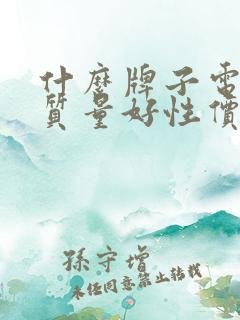 什麼牌子電
質量好性價
孫守增
未經同意禁止轉載